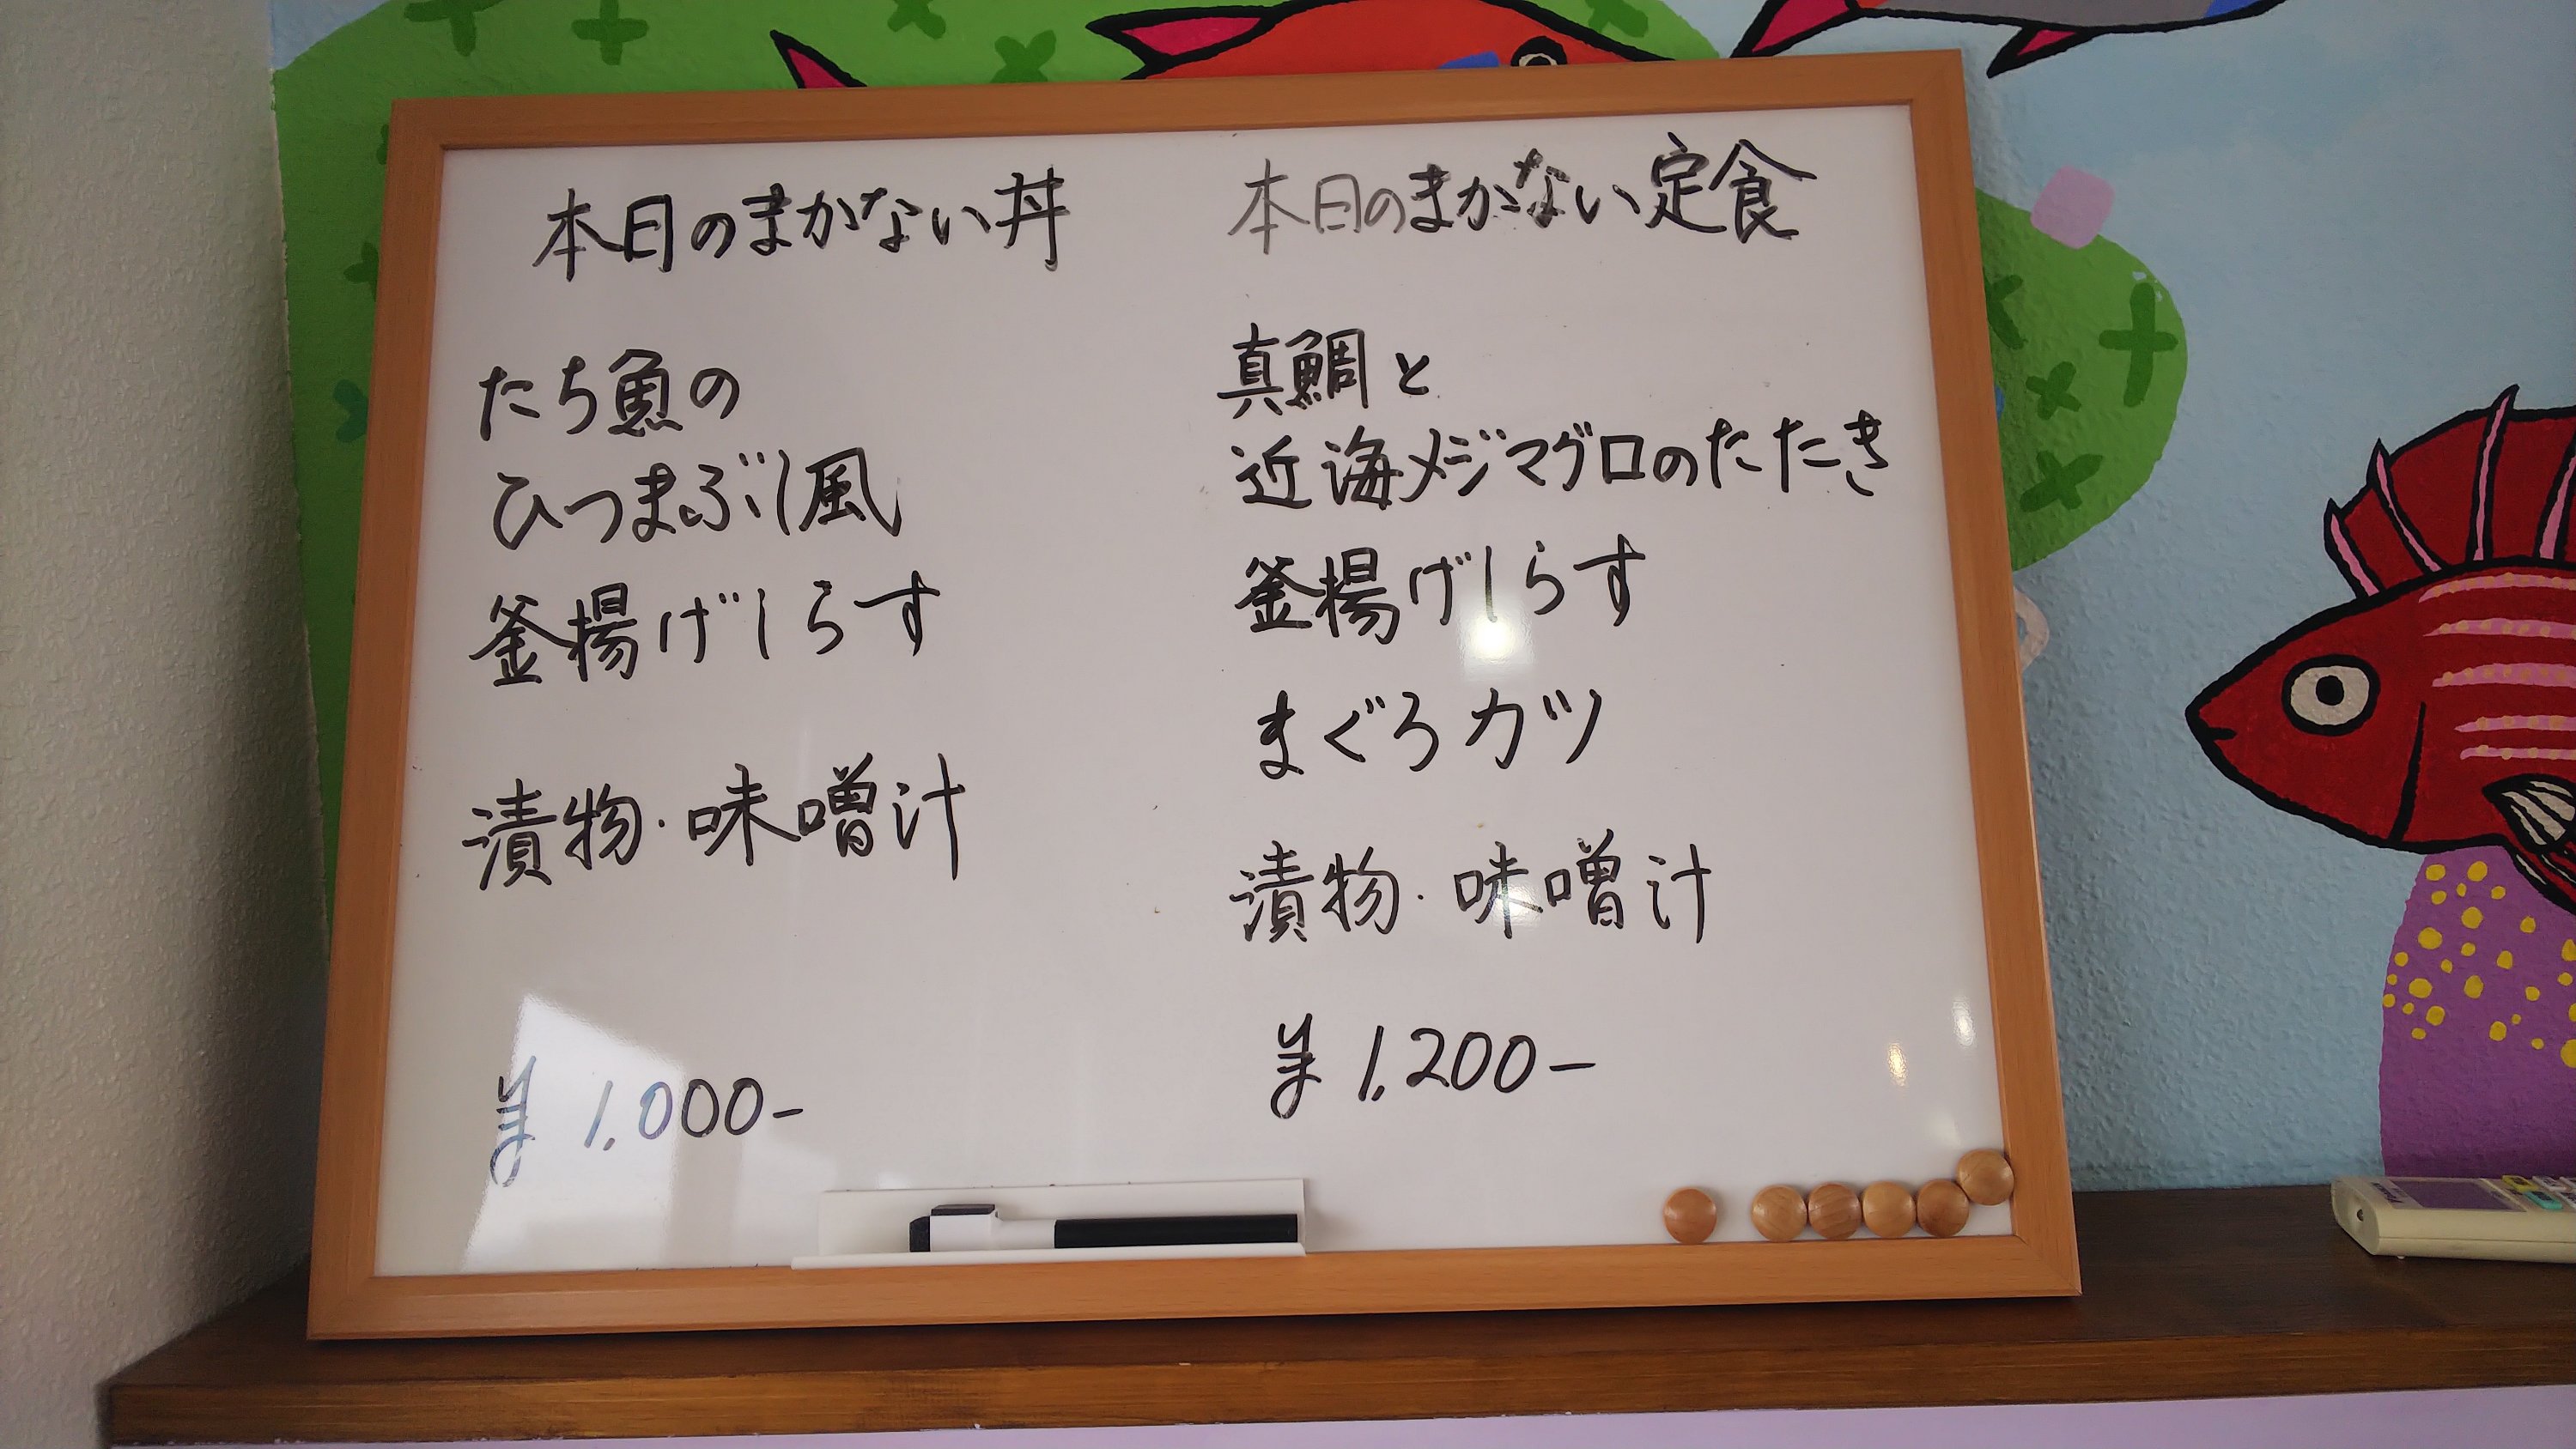 本日のまかない丼
たち魚の
ひつまぶし風
釜揚げしらす
漬物・味噌汁
¥ 1,000-
本日のまかない定食
真鯛と
近海メジマグロのたたき
釜揚げしらす
まぐろカツ
漬物・味噌汁
¥ 1,200-